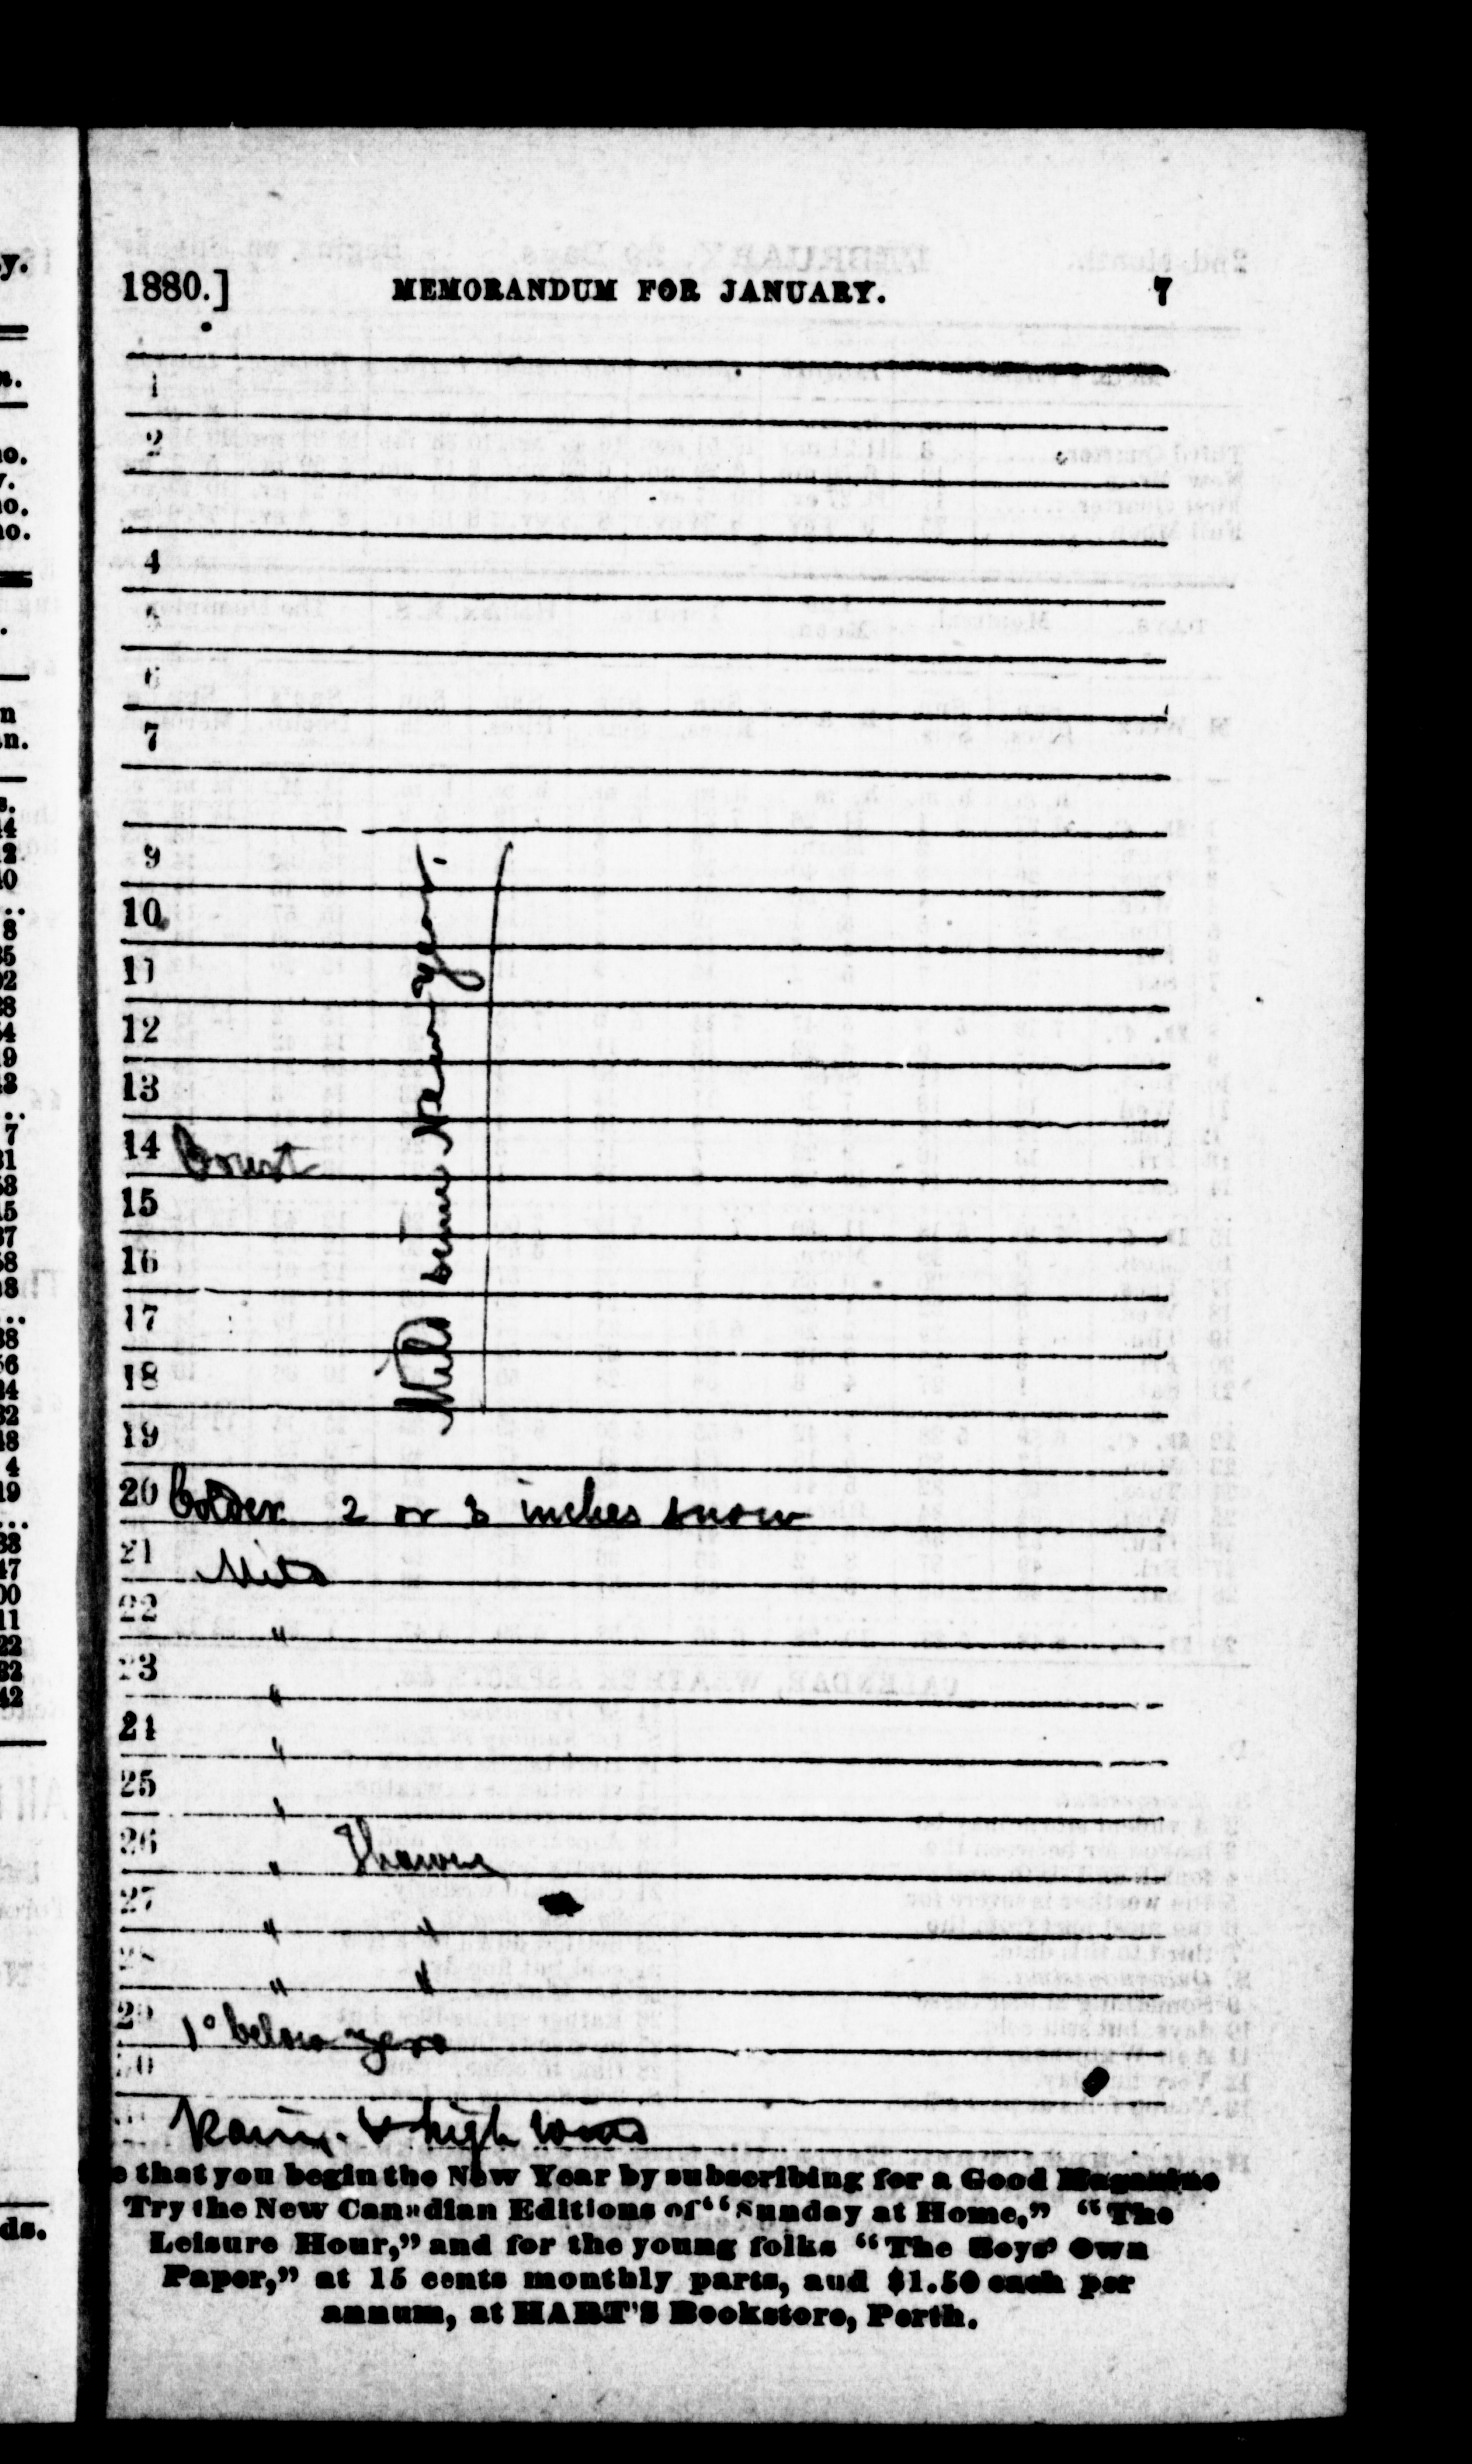 1880.] MEMORANDUM FOR JANUARY. 7
1
2
4
5
6
7
9
10
11
12
13
14 Court
15
16
17
18
Mild since New year.
19
20 Colder 2 or 3 inches snow
21 Mild
22 "
23 "
24 "
25 "
26 " Thawing
27 " "
28 " "
29 1° below zero
30
Rain. & high wind
e that you begin the New Year by subscribing for a Good Magazine
Try the New Canadian Editions of "Sunday at Home," "The
Leisure Hour," and for the young folks "The Boys' Own
Paper," at 15 cents monthly parts, aud $1.50 each per
annum, at HART'S Bookstore, Perth.